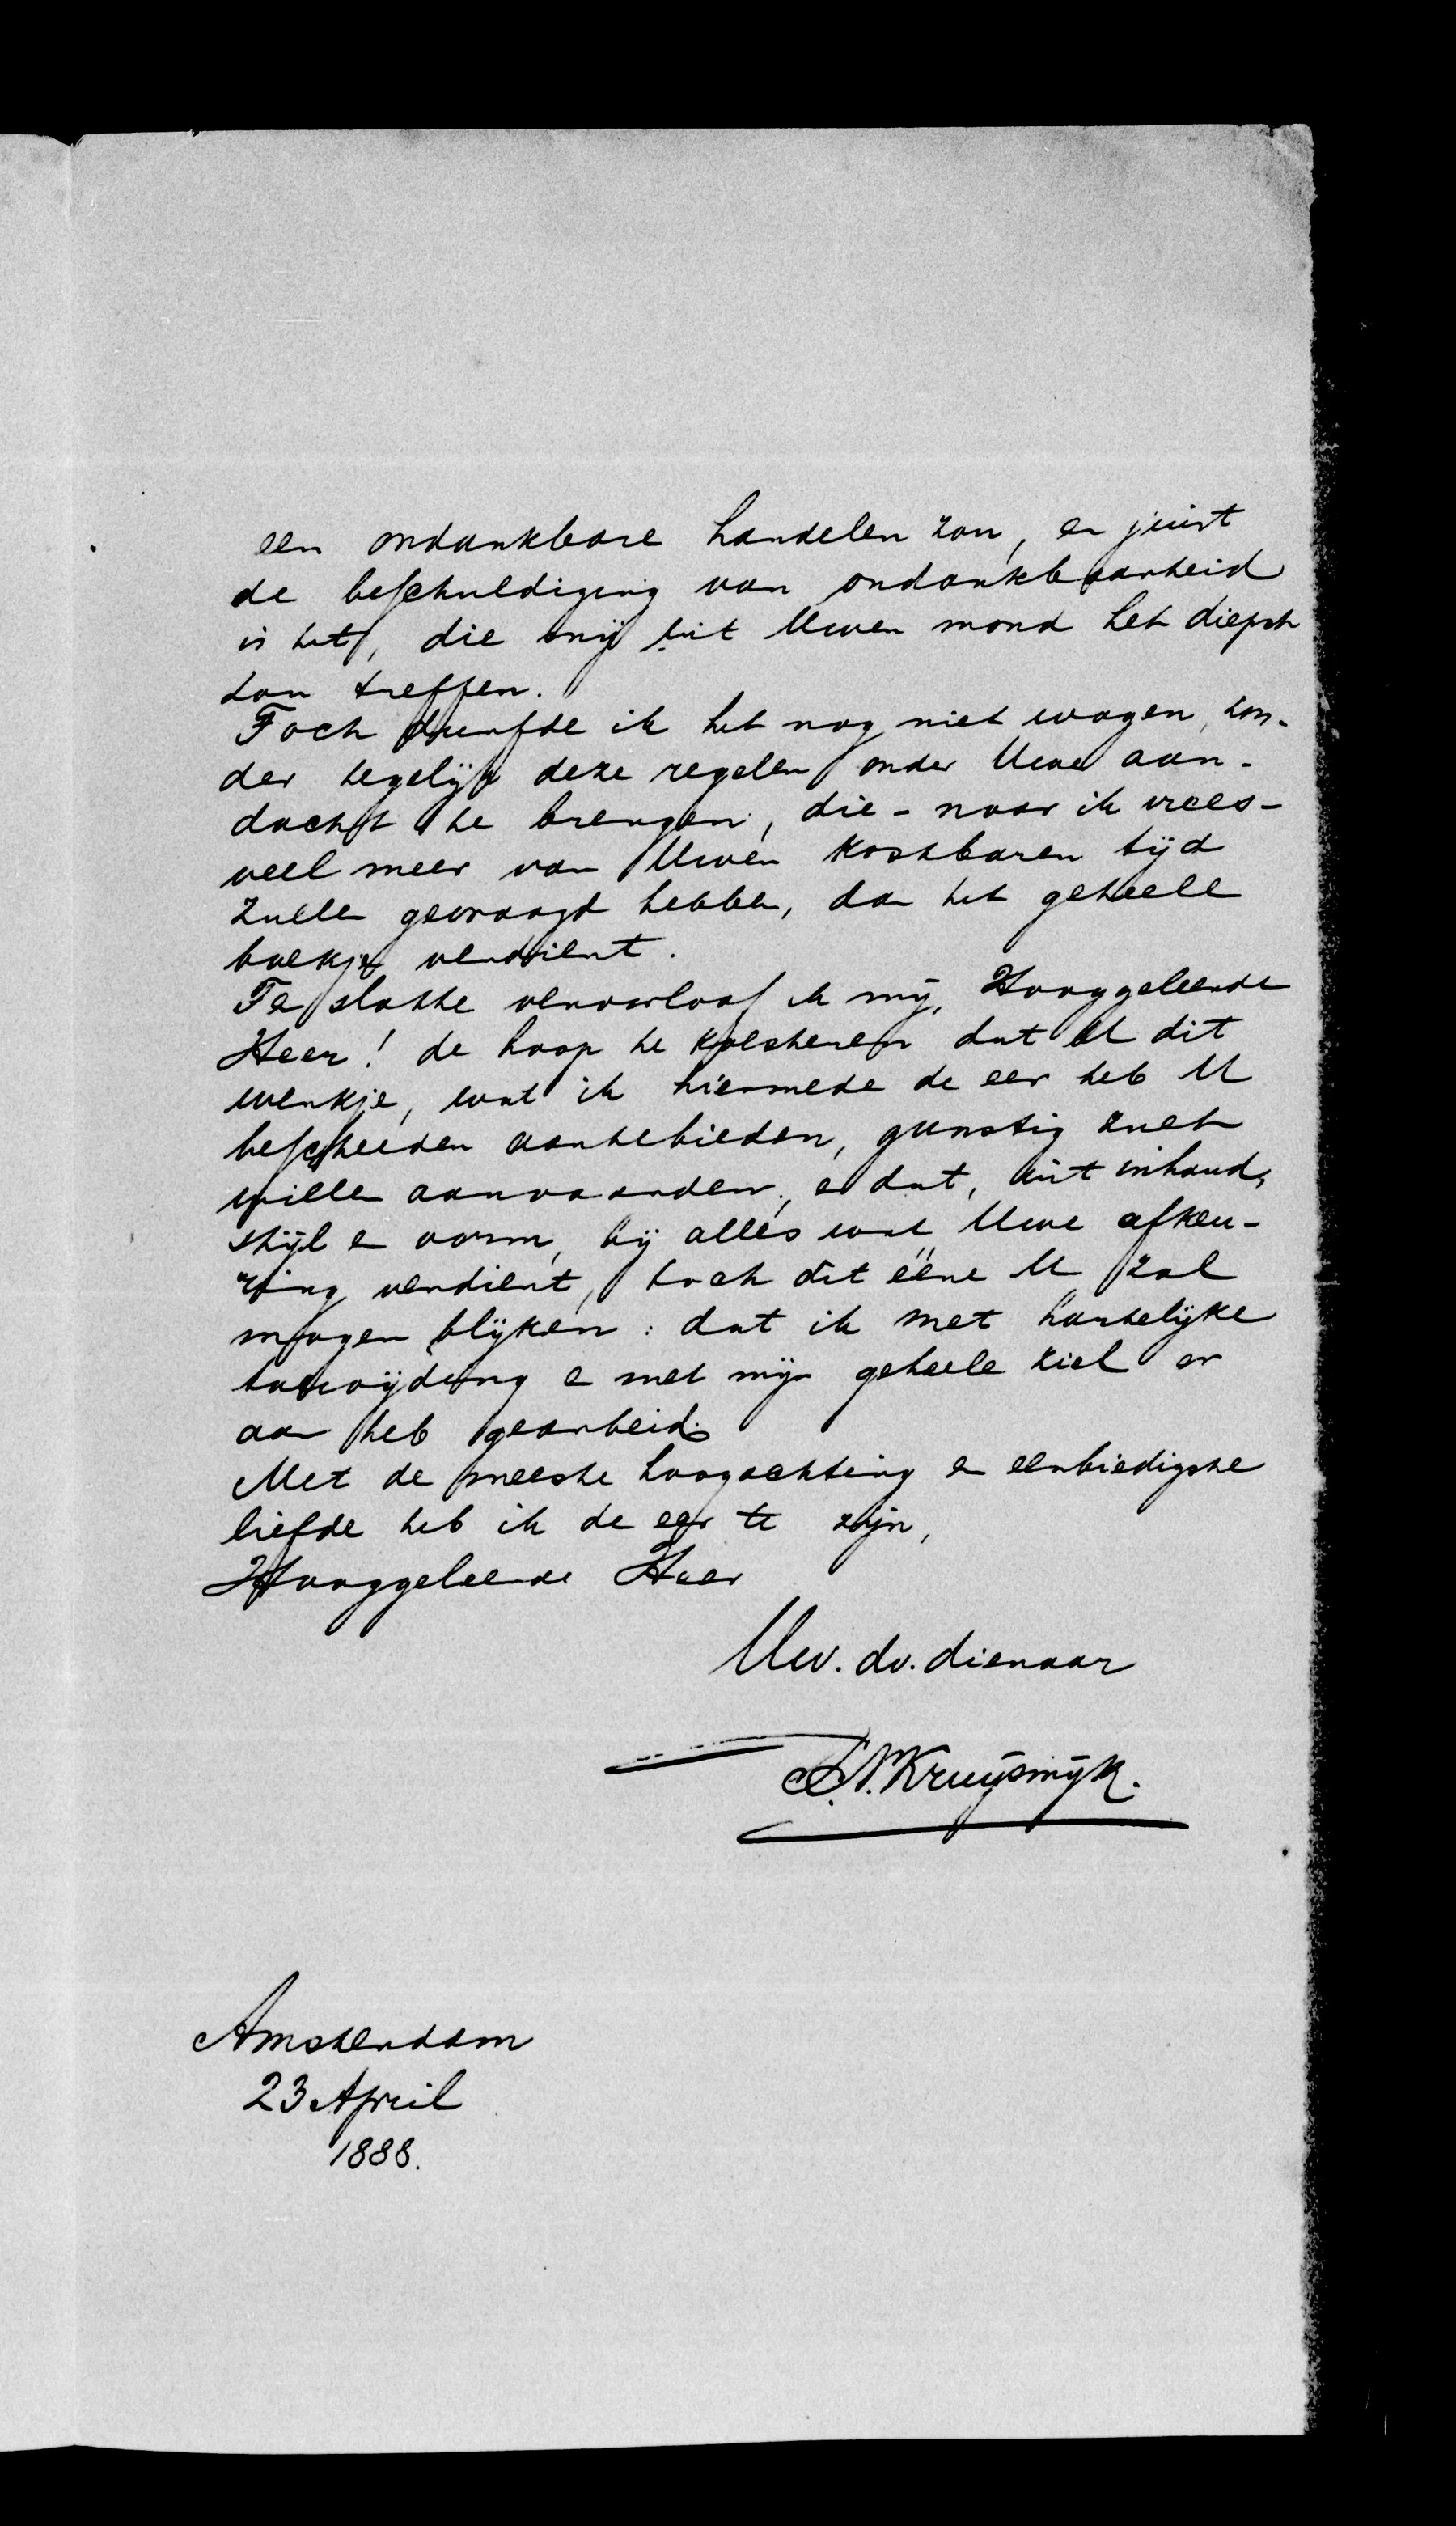 een ondankbare handelen zou, en juist
de beschuldiging van ondankbaarheid
is het, die mij uit Uwen mond het diepst
zou treffen.
Toch durfde ik het nog niet wagen, zon-
der tegelijk deze regelen onder Uwe aan-
dacht te brengen, die - naar ik vrees -
veel meer van Uwen kostbaren tijd
zullen gevraagd hebben, dan het geheele
boekje verdient.
Te slotte veroorloof ik mij, Hooggeleerde
Heer! de hoop te koesteren dat U dit
werkje, wat ik hiermede de eer heb U
bescheiden aantebieden, gunstig zult
willen aanvaarden, en dat, uit inhoud,
stijl en vorm, bij alles wat Uwe afkeu-
ring verdient, toch dit ééne U zal
mogen blijken: dat ik met hartelijke
toewijding en met mijn geheele ziel er
aan heb gearbeid.
Met de meeste hoogachting en eerbiedigste
liefde heb ik de eer te zijn,
Hooggeleerde Heer
Uw. dv. dienaar
Kruysmÿk.
Amsterdam
23 April
1888.